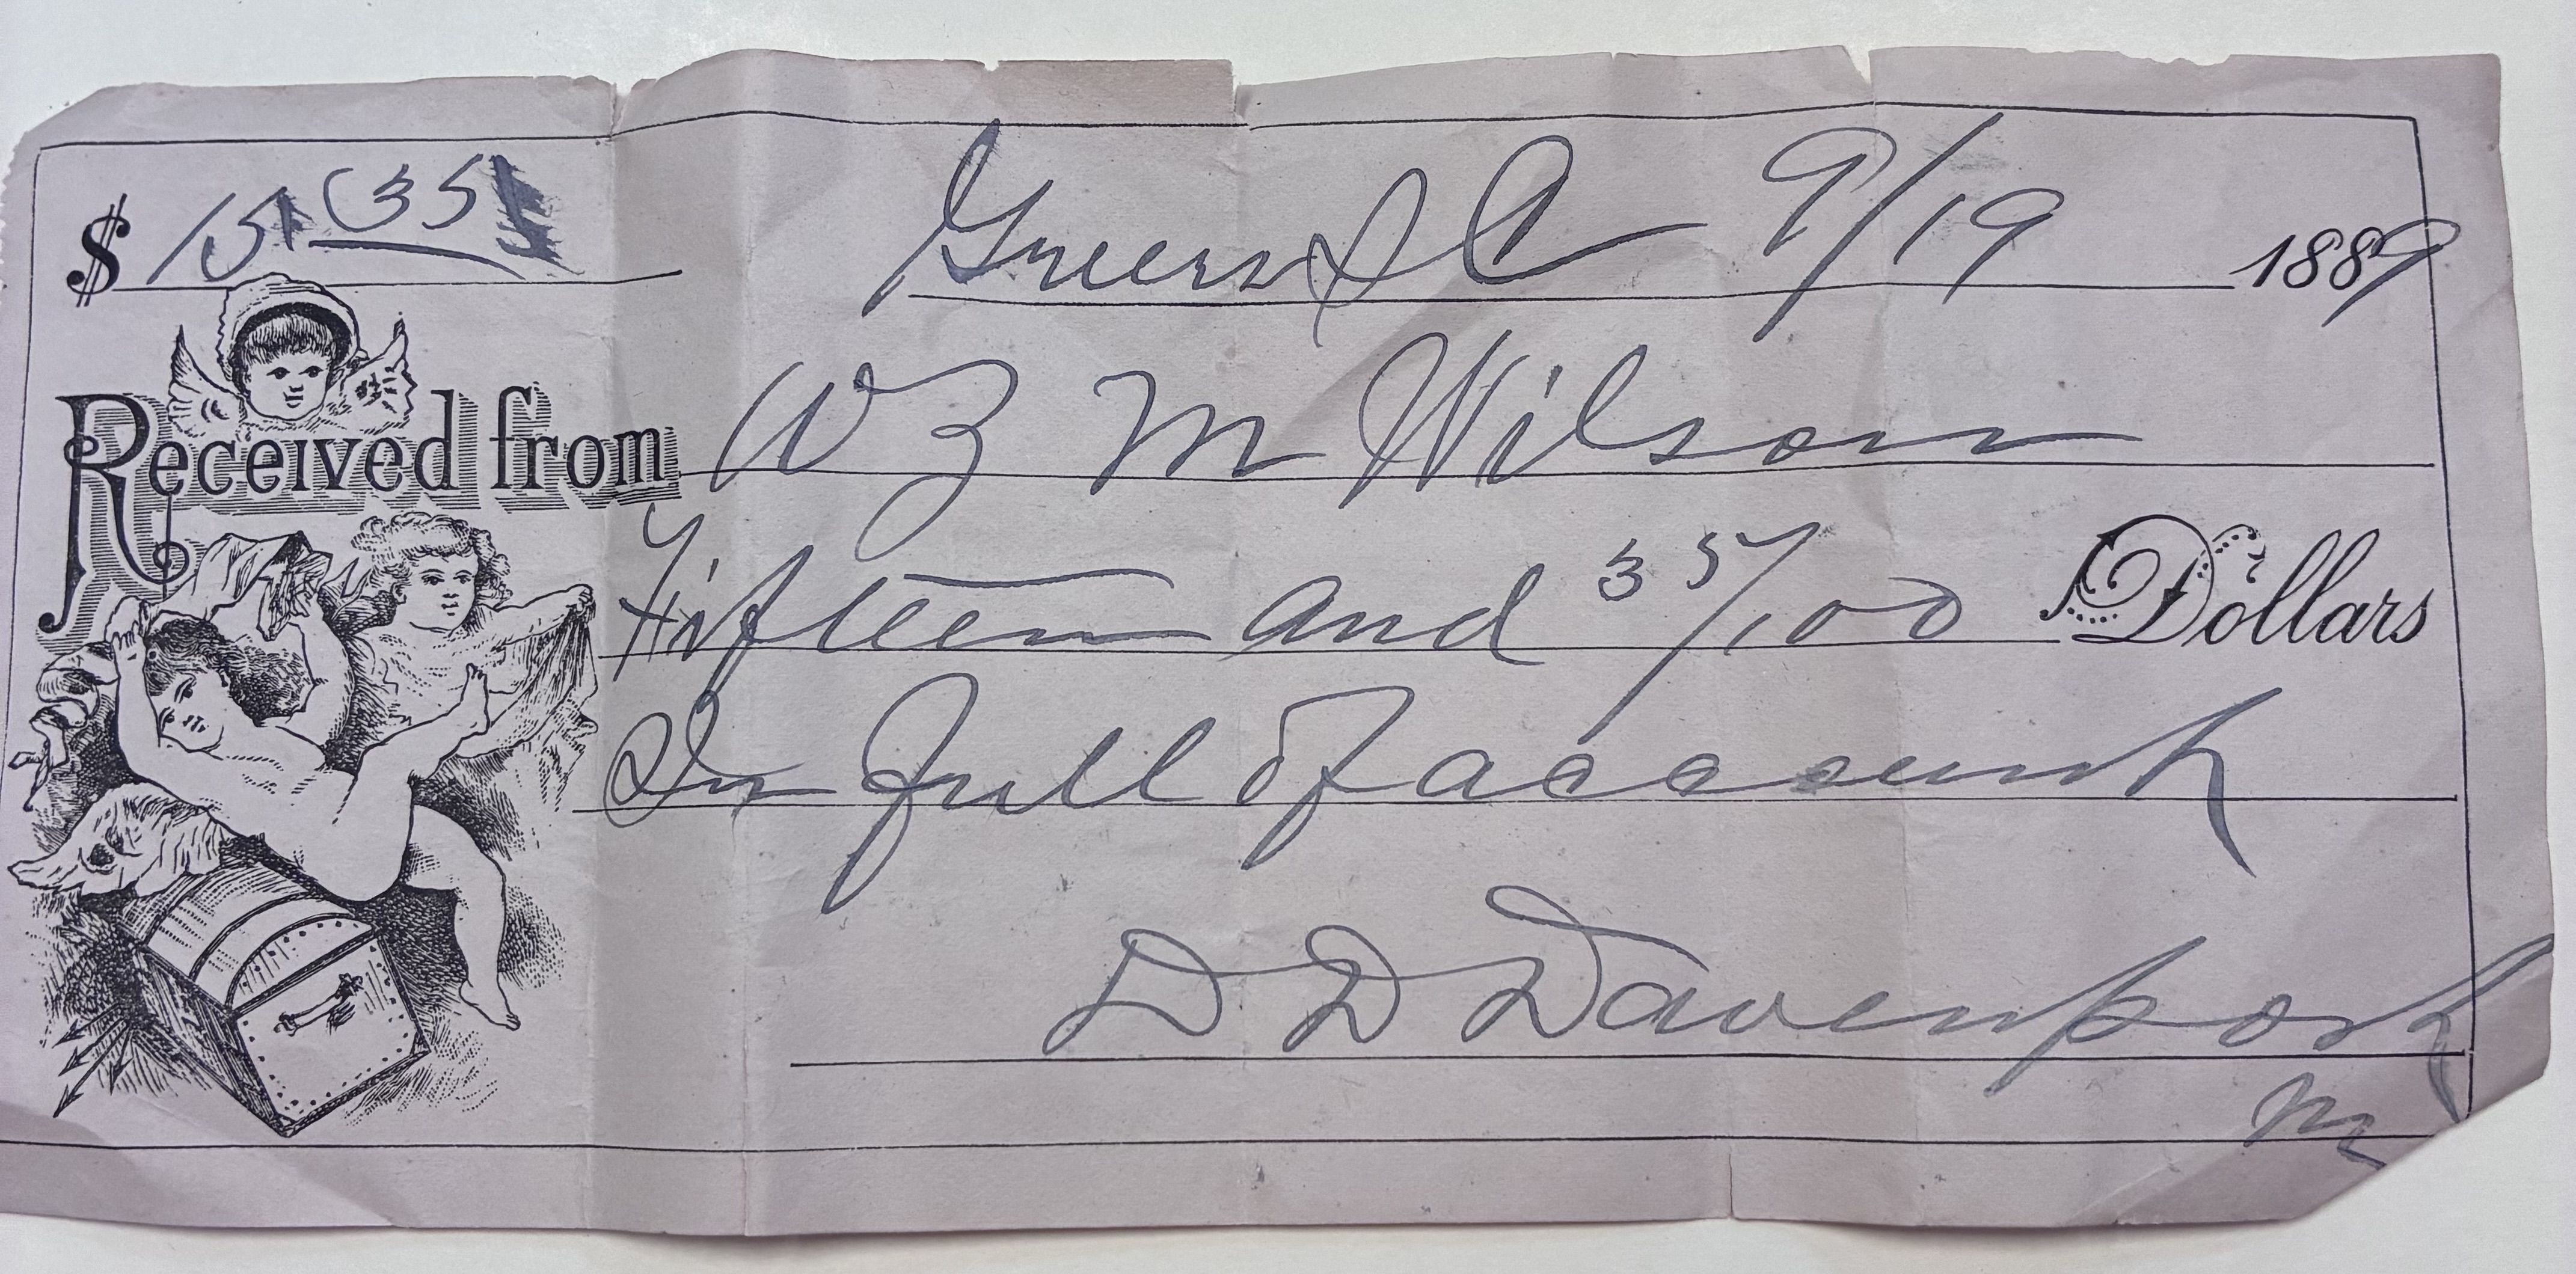 $ 15.35 Greers S C 9/19 1889
Received from W Z M Wilson
Fifteen and 35/100 Dollars
In full of account
D D Davenport
M